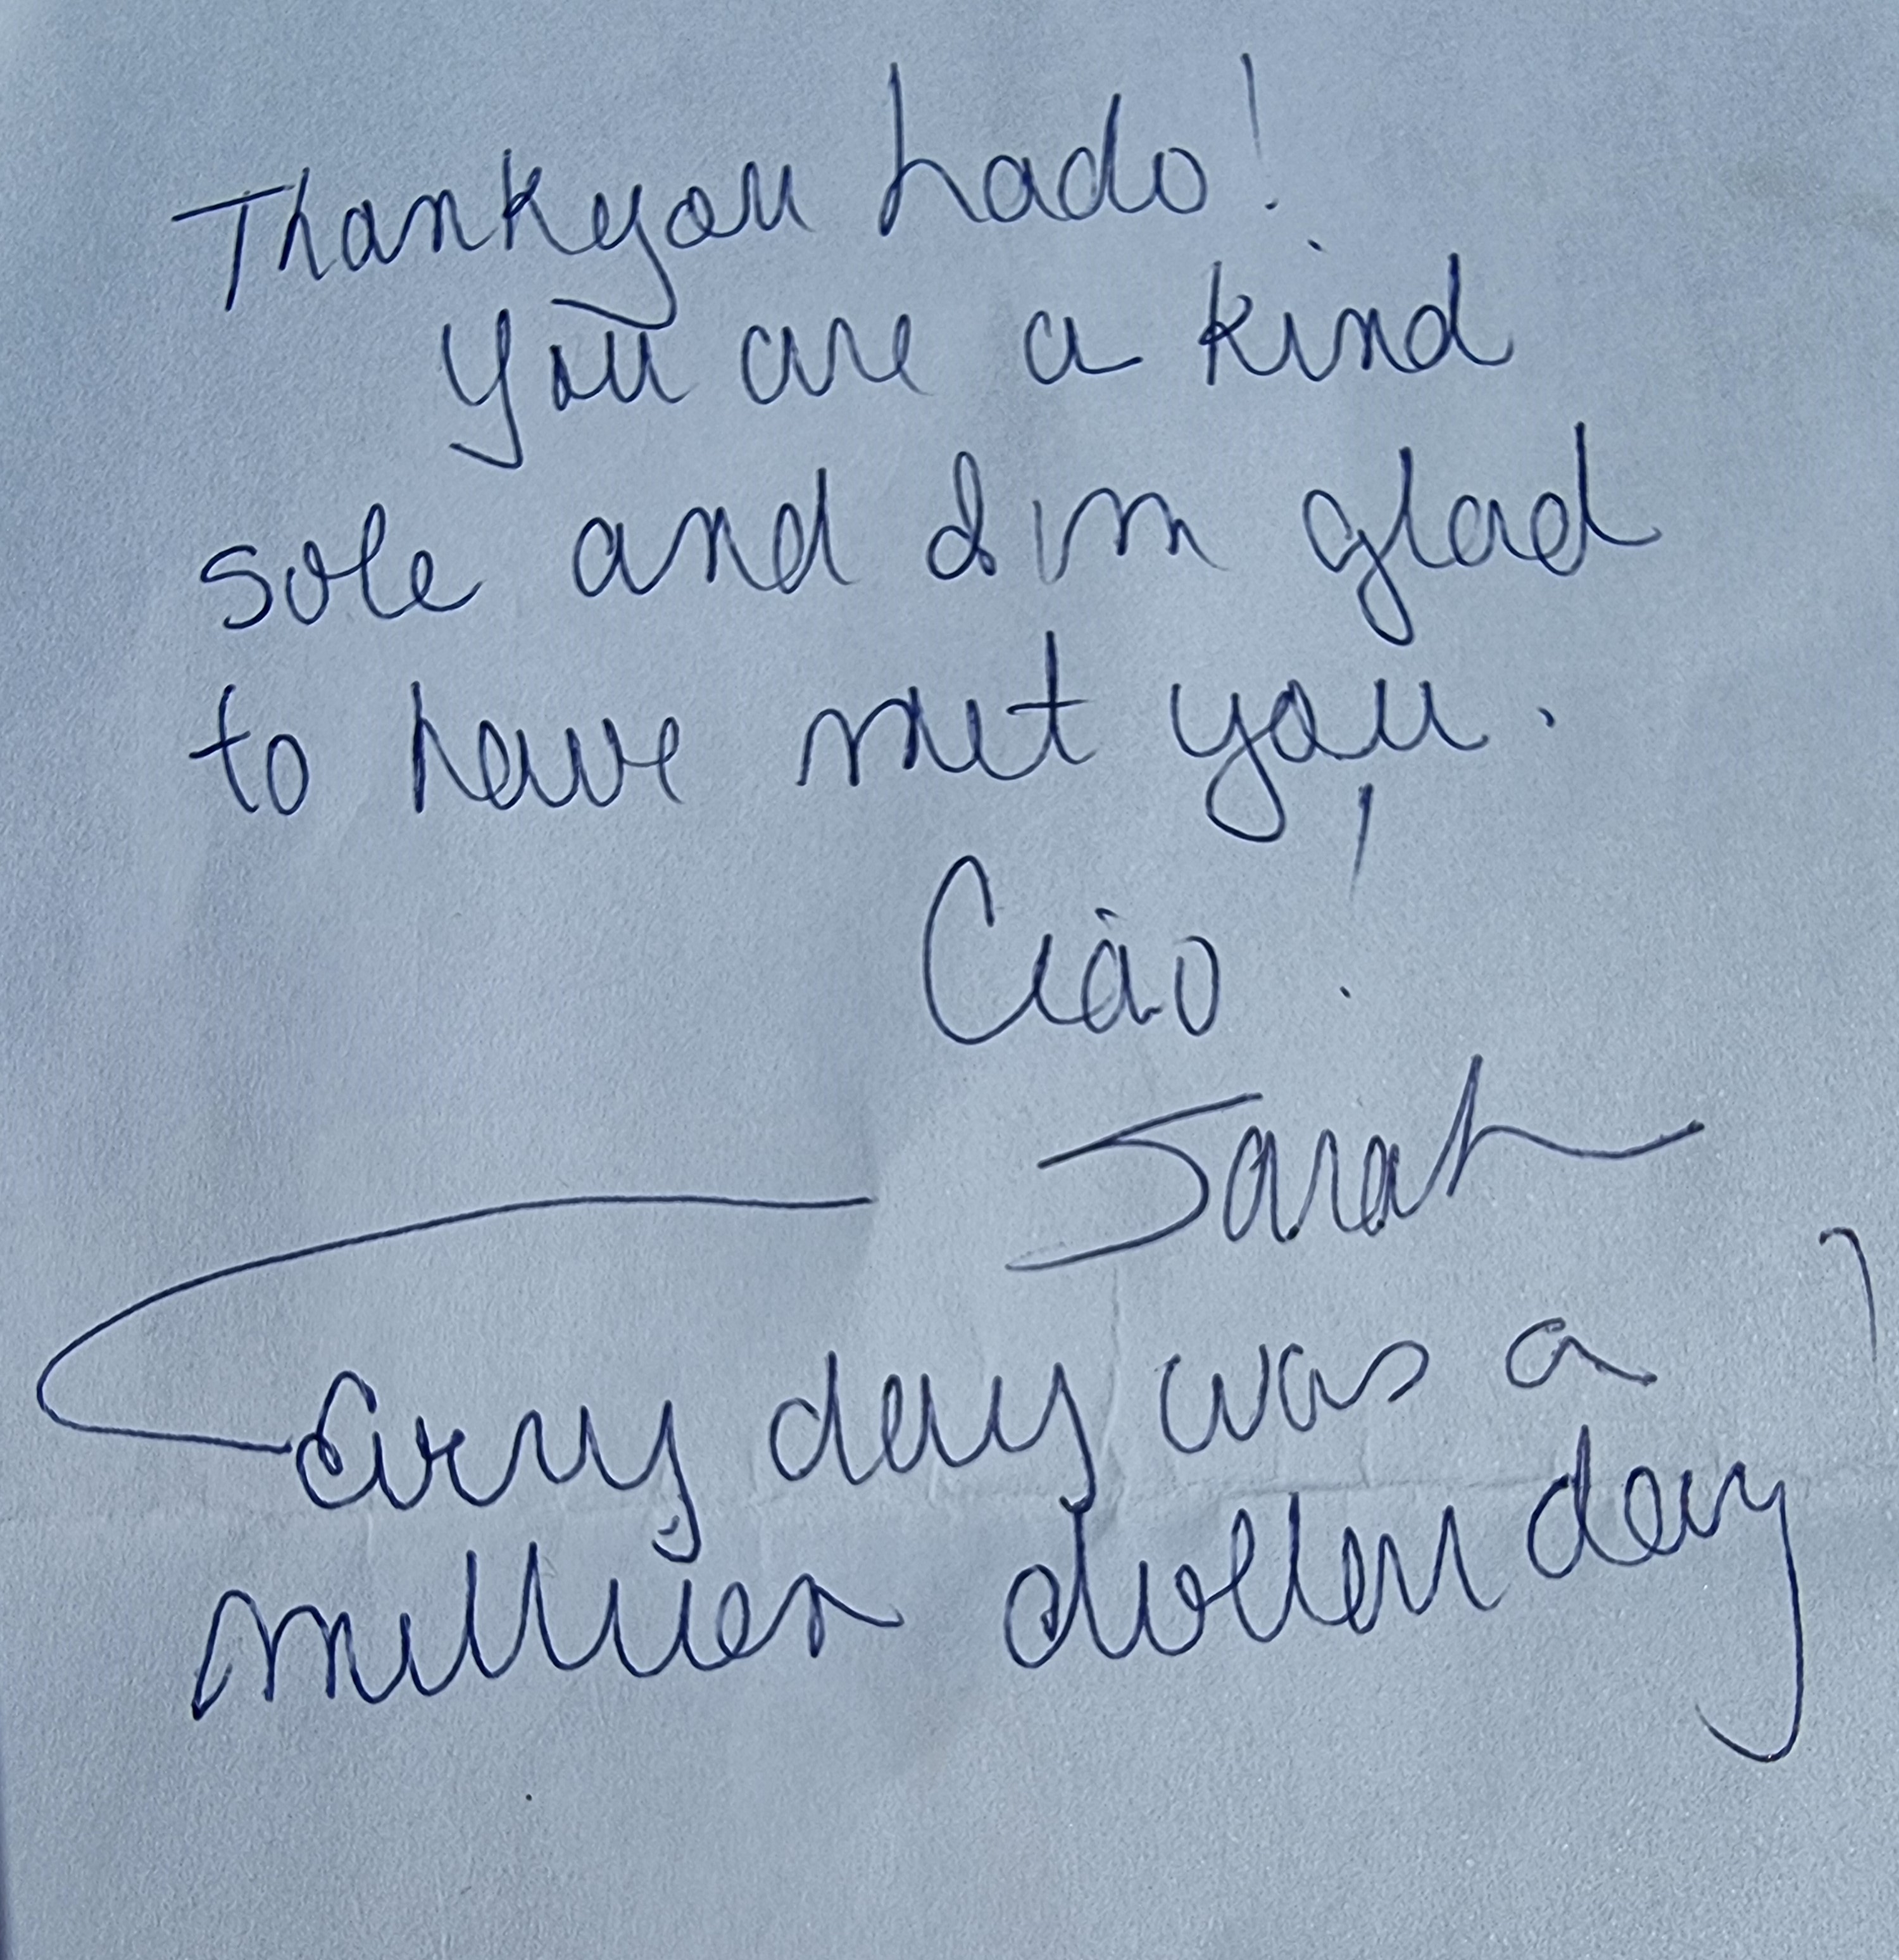 Thankyou Lado!
You are a kind
sole and I'm glad
to have met you.
Ciao!
Sarah
Every day was a
million dollar day